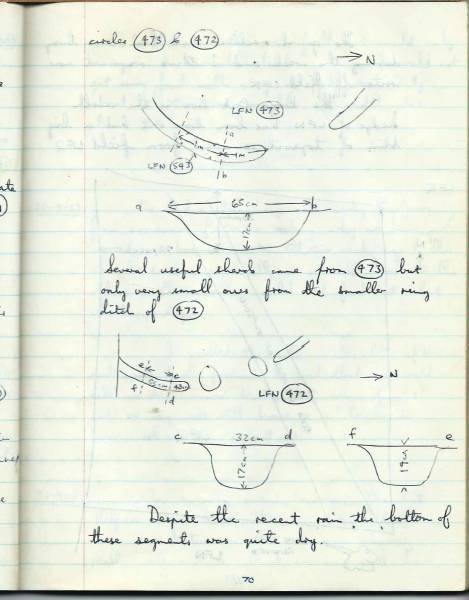 circles 473 & 472
→ N
LFN 473
a
1m
1m
LFN 543
b
a 65cm b
17cm
Several useful sherds came from 473 but
only very small ones from the smaller ring
ditch of 472
e
c
f
d
LFN 472
→ N
c 32cm d
17cm
f e
19cm
Despite the recent rain, the bottom of
these segments was quite dry.
70